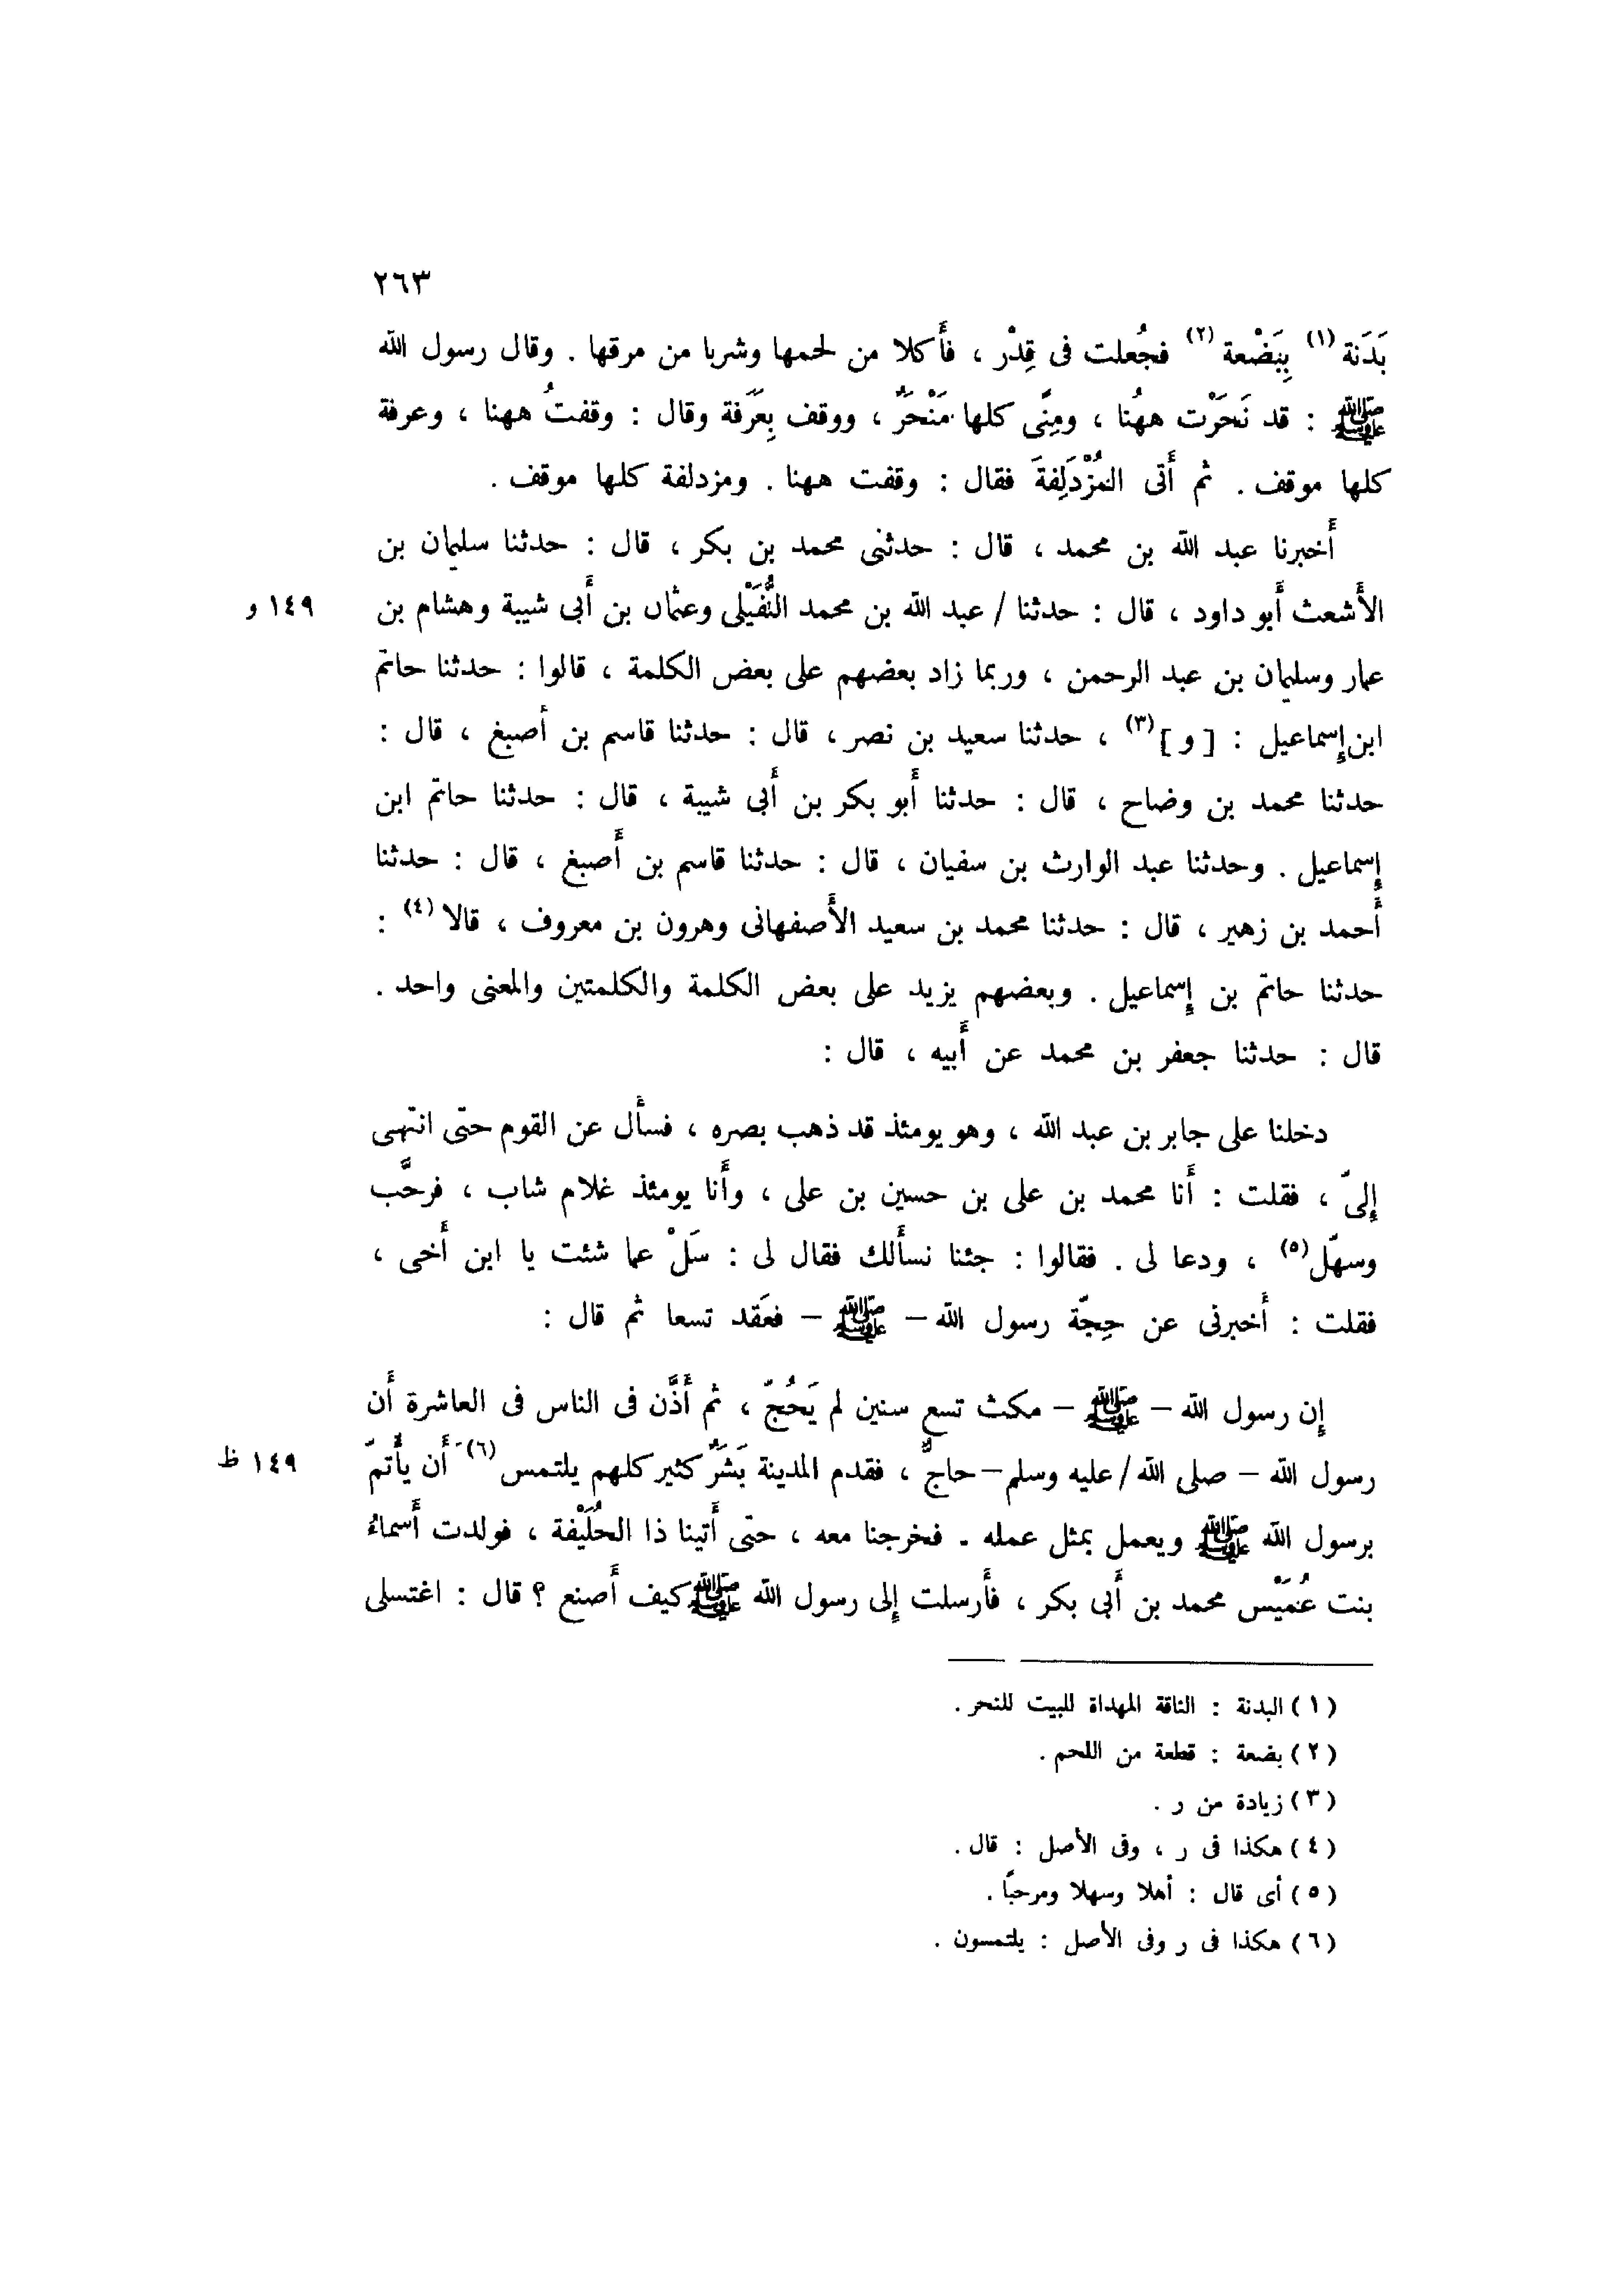 ٢٦٣
بَدَنة (١) بِبَضْعة (٢) فجُعلت فى قِدْر ، فأَكلا من لحمها وشربا من مرقها . وقال رسول الله
ﷺ : قد نَحَرْت ههُنا ، ومِنًى كلها مَنْحَرٌ ، ووقف بِعَرَفة وقال : وقفتُ ههنا ، وعرفة
كلها موقف . ثم أَتى المُزْدَلِفةَ فقال : وقفت ههنا . ومزدلفة كلها موقف .
أَخبرنا عبد الله بن محمد ، قال : حدثنى محمد بن بكر ، قال : حدثنا سليمان بن
الأَشعث أَبو داود ، قال : حدثنا / عبد الله بن محمد النُّفَيْلى وعثمان بن أَبى شيبة وهشام بن
١٤٩ و
عمار وسليمان بن عبد الرحمن ، وربما زاد بعضهم على بعض الكلمة ، قالوا : حدثنا حاتم
ابن إِسماعيل : [ و ] (٣) ، حدثنا سعيد بن نصر ، قال : حدثنا قاسم بن أَصبغ ، قال :
حدثنا محمد بن وضاح ، قال : حدثنا أَبو بكر بن أَبى شيبة ، قال : حدثنا حاتم ابن
إِسماعيل . وحدثنا عبد الوارث بن سفيان ، قال : حدثنا قاسم بن أَصبغ ، قال : حدثنا
أَحمد بن زهير ، قال : حدثنا محمد بن سعيد الأَصفهانى وهرون بن معروف ، قالا (٤) :
حدثنا حاتم بن إِسماعيل . وبعضهم يزيد على بعض الكلمة والكلمتين والمعنى واحد .
قال : حدثنا جعفر بن محمد عن أَبيه ، قال :
دخلنا على جابر بن عبد الله ، وهو يومئذ قد ذهب بصره ، فسأَل عن القوم حتى انتهى
إِلىّ ، فقلت : أَنا محمد بن على بن حسين بن على ، وأَنا يومئذ غلام شاب ، فرحَّب
وسهّل (٥) ، ودعا لى . فقالوا : جئنا نسأَلك فقال لى : سَلْ عما شئت يا ابن أَخى ،
فقلت : أَخبرنى عن حِجّة رسول الله – ﷺ – فعَقد تسعا ثم قال :
إِن رسول الله – ﷺ – مكث تسع سنين لم يَحُجّ ، ثم أَذَّن فى الناس فى العاشرة أَن
رسول الله – صلى الله / عليه وسلم – حاجٌّ ، فقدم المدينة بَشَرٌ كثير كلهم يلتمس (٦) أَن يأْتمّ
١٤٩ ظ
برسول الله ﷺ ويعمل بمثل عمله . فخرجنا معه ، حتى أَتينا ذا الحُلَيْفة ، فولدت أَسماءُ
بنت عُمَيْس محمد بن أَبى بكر ، فأَرسلت إِلى رسول الله ﷺ كيف أَصنع ؟ قال : اغتسلى
(١) البدنة : الناقة المهداة للبيت للنحر .
(٢) بضعة : قطعة من اللحم .
(٣) زيادة من ر .
(٤) هكذا فى ر ، وفى الأصل : قال .
(٥) أى قال : أهلا وسهلا ومرحبًا .
(٦) هكذا فى ر وفى الأصل : يلتمسون .